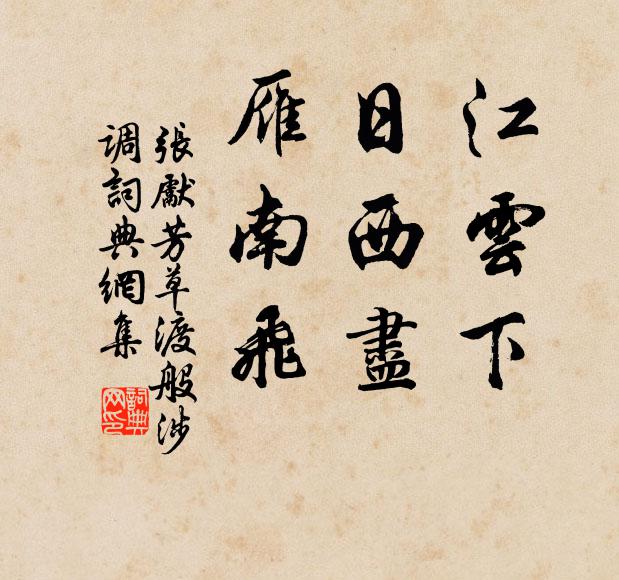 江雲下
日西盡
雁南飛
張獻芳草渡般涉
调詞典網集
詞典
网印